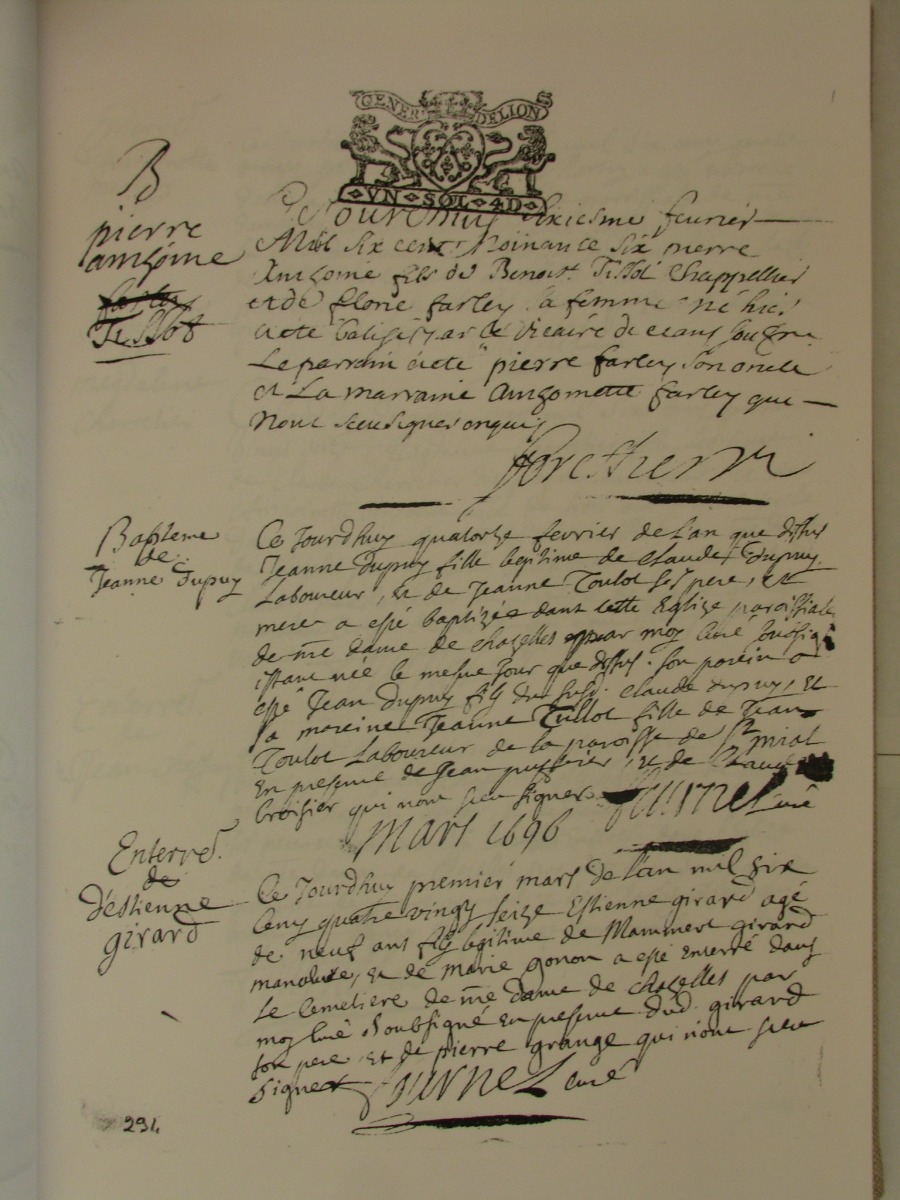 GENER DELION
VN SOL 4D
B
pierre
anthoine
farley
Tissot
Ce Jourdhuy sixiesme feuvrier
Mil six cent Noinante six pierre
Anthoine fils de Benoist Tissot Chappellier
et de florie farley sa femme né hier
a eté batisé par le vicaire de ceans soussigné
Le parrain a eté pierre farley son oncle
et La marraine Anthomette farley qui
Nont sceu signer enquis
Bapteme
de
Jeanne Dupuy
Ce Jourdhuy quatorze fevrier de l'an que dessus
Jeanne Dupuy fille legitime de Claude Dupuy
Laboureur, et de Jeanne Toulot ses pere, et
mere a esté baptizée dans cette Eglise paroissiale
de nre dame de chazelles par moy curé soussigné
estant née le mesme jour que dessus. son parein a
esté Jean Dupuy fils dud. Claude dupuy, et
sa mareine Jeanne Tullot fille de Jean
Toulot Laboureur de la paroisse de St mial
En presence de Jean , et de Claude
Croisier qui nont sceu signer fournel curé
Mars 1696
Enterret.
de
d'estienne
girard
Ce Jourdhuy premier mars de l'an mil six
Cens quatre vingt seize Estienne girard agé
de neuf ans fils legitime de Mammert girard
manoeuvre, et de marie gonon a esté enterré dans
Le Cemetiere de nre dame de chazelles par
moy curé soubsigné En presence dud. girard
son pere et de pierre grange qui nont sceu
signer fournel curé
291